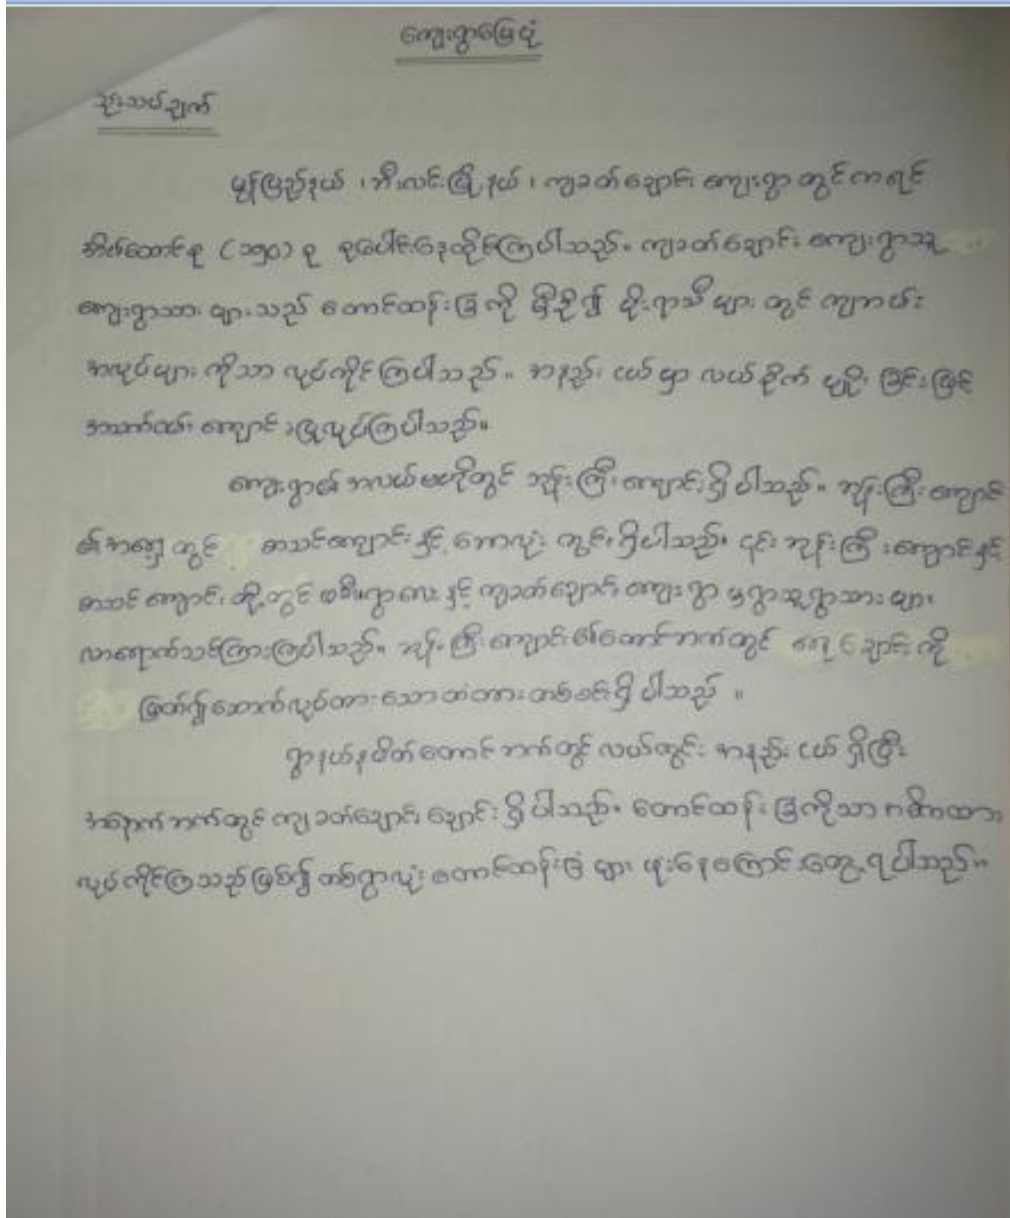 ကျေးရွာမြေပုံ
သုံးသပ်ချက်
မွန်ပြည်နယ် ၊ ဘီးလင်းမြို့နယ် ၊ ကျခတ်ချောင်း ကျေးရွာ တွင် ကရင်
အိမ်ထောင်စု ( ၁၅၀ ) စု စုပေါင်းနေထိုင်ကြပါသည်။ ကျခတ်ချောင်း ကျေးရွာသူ
ကျေးရွာသား များသည် တောင်ထန်းခြံ ကို မှီခို၍ မိုးရာသီ များ တွင် ကျဘမ်း
အလုပ်များ ကိုသာ လုပ်ကိုင်ကြပါသည်။ အနည်း ငယ် မှာ လယ်စိုက် ပျိုး ခြင်းဖြင့်
အသက်မွေး ကျောင်း ပြုလုပ်ကြပါသည်။
ကျေးရွာ၏ အလယ်ဗဟိုတွင် ဘုန်းကြီးကျောင်းရှိပါသည်။ ဘုန်းကြီးကျောင်း
၏အရှေ့ တွင် စာသင်ကျောင်းနှင့် ဘောလုံး ကွင်းရှိပါသည်။ ၎င်း ဘုန်းကြီးကျောင်းနှင့်
စာသင် ကျောင်း တို့တွင် ရွာလေး နှင့် ကျခတ်ချောင်း ကျေးရွာ မှရွာသူရွာသား များ
လာရောက်သင်ကြားကြပါသည်။ ဘုန်းကြီးကျောင်း၏တောင်ဘက်တွင် ချောင်း ကို
ဖြတ်၍ ဆောက်လုပ်ထားသော တံတား တစ်စင်းရှိပါသည် ။
ရွာနယ်နမိတ် တောင်ဘက်တွင် လယ်ကွင်း အနည်း ငယ် ရှိပြီး
အနောက်ဘက်တွင် ကျခတ်ချောင်း ချောင်း ရှိပါသည်။ တောင်ထန်းခြံကိုသာ ဂရိုဏထား
လုပ်ကိုင်ကြသည်ဖြစ်၍ တစ်ရွာလုံး တောင်ထန်းခြံ များ ဖုံးနေကြောင်း တွေ့ရပါသည်။